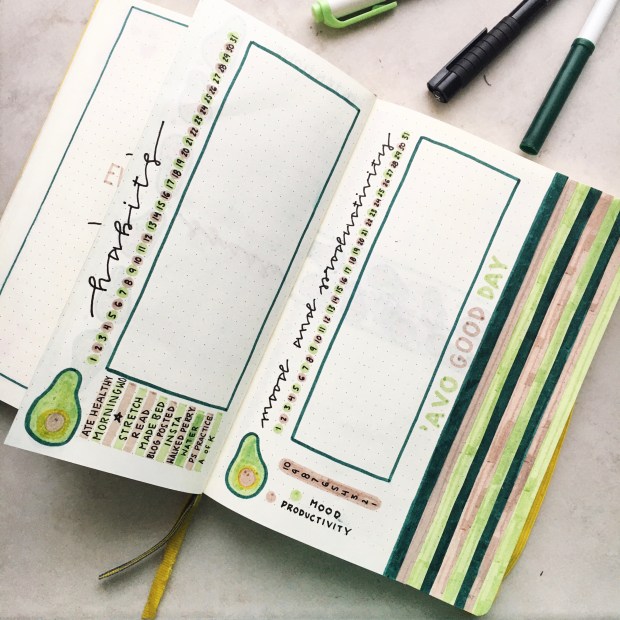 habits
1 2 3 4 5 6 7 8 9 10 11 12 13 14 15 16 17 18 19 20 21 22 23 24 25 26 27 28 29 30 31
ATE HEALTHY
MORNING WO
STRETCH
READ
MADE BED
BLOG POSTED
INSTA
WATER
WALKED PERRY
PS PRACTICE
A. OF K
mood and productivity
1 2 3 4 5 6 7 8 9 10 11 12 13 14 15 16 17 18 19 20 21 22 23 24 25 26 27 28 29 30 31
10 9 8 7 6 5 4 3 2 1
MOOD
PRODUCTIVITY
'AVO GOOD DAY